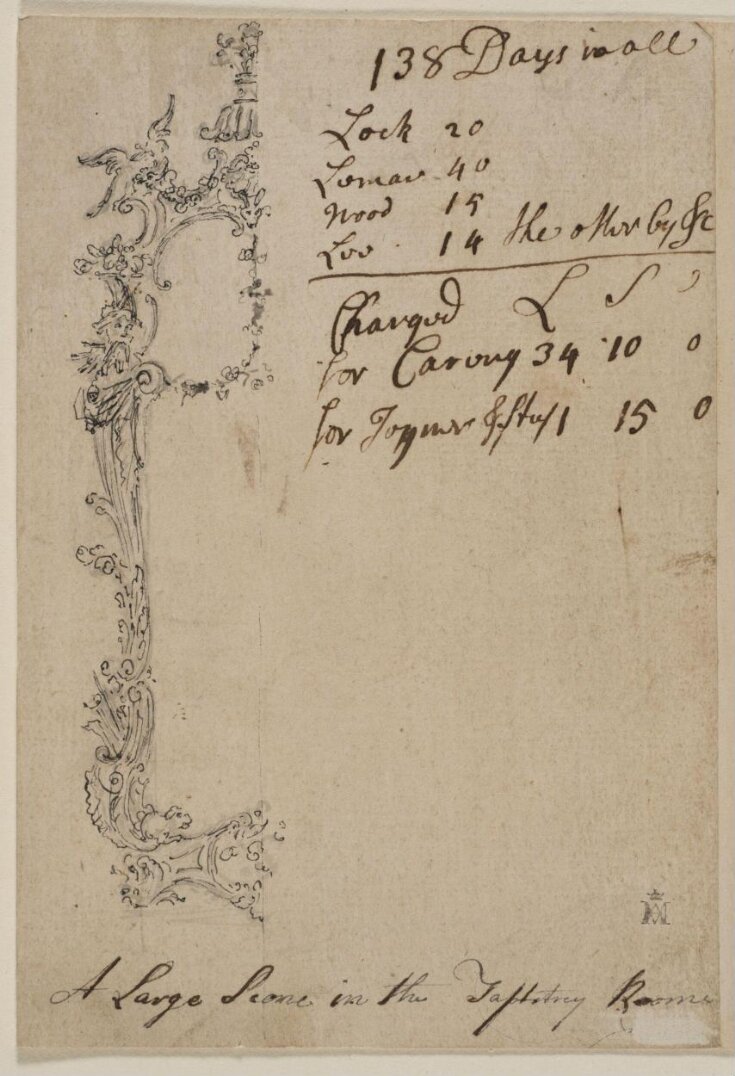 138 Days in all
Lock 20
Lomax 40
Wood 15
Loo 14 the other by &c
Charged L S
for Carving 34 10 0
for Joyner & stuf 1 15 0
A Large Scone in the Tapstrey Roome